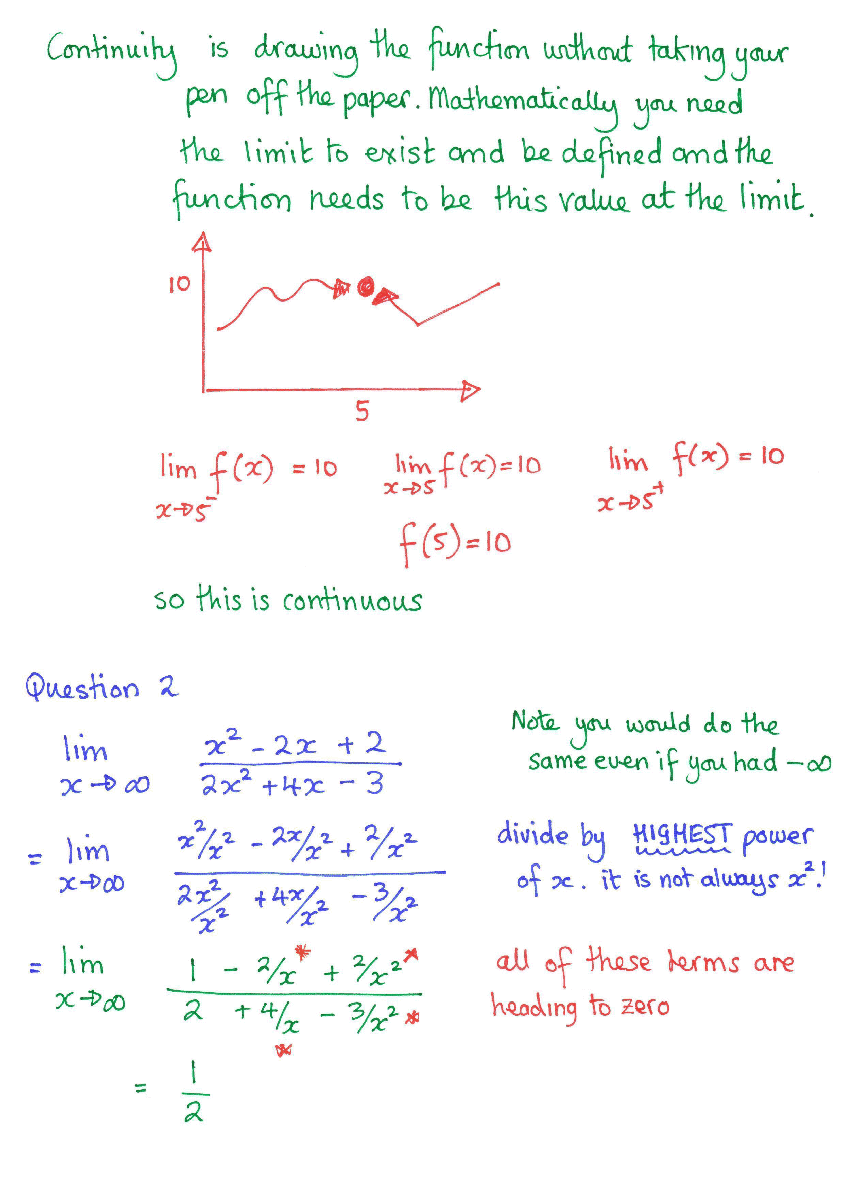 Continuity is drawing the function without taking your
pen off the paper. Mathematically you need
the limit to exist and be defined and the
function needs to be this value at the limit.
10
5
lim f(x) = 10 lim f(x)=10 lim f(x) = 10
x→5⁻ x→5 x→5⁺
f(5)=10
so this is continuous
Question 2
Note you would do the
same even if you had -∞
lim x² - 2x + 2
x→∞ 2x² + 4x - 3
divide by HIGHEST power
of x. it is not always x²!
= lim x²/x² - 2x/x² + 2/x²
x→∞ 2x²/x² + 4x/x² - 3/x²
all of these terms are
heading to zero
= lim 1 - 2/x* + 2/x²*
x→∞ 2 + 4/x* - 3/x²*
= 1
2